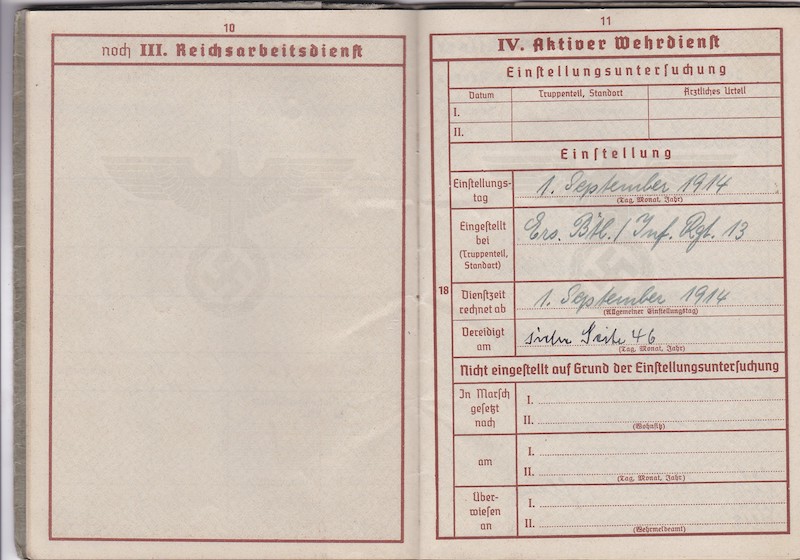 10
noch III. Reichsarbeitsdienst
11
IV. Aktiver Wehrdienst
Einstellungsuntersuchung
Datum Truppenteil, Standort Ärztliches Urteil
I.
II.
Einstellung
Einstellungs-
tag
1. September 1914
(Tag, Monat, Jahr)
Eingestellt
bei
(Truppenteil,
Standort)
Ers. Btl. / Inf. Rgt. 13
18
Dienstzeit
rechnet ab
1. September 1914
(Allgemeiner Einstellungstag)
Vereidigt
am
siehe Seite 46
(Tag, Monat, Jahr)
Nicht eingestellt auf Grund der Einstellungsuntersuchung
In Marsch
gesetzt
nach
I.
II.
(Wohnsitz)
am
I.
II.
(Tag, Monat, Jahr)
Über-
wiesen
an
I.
II.
(Wehrmeldeamt)